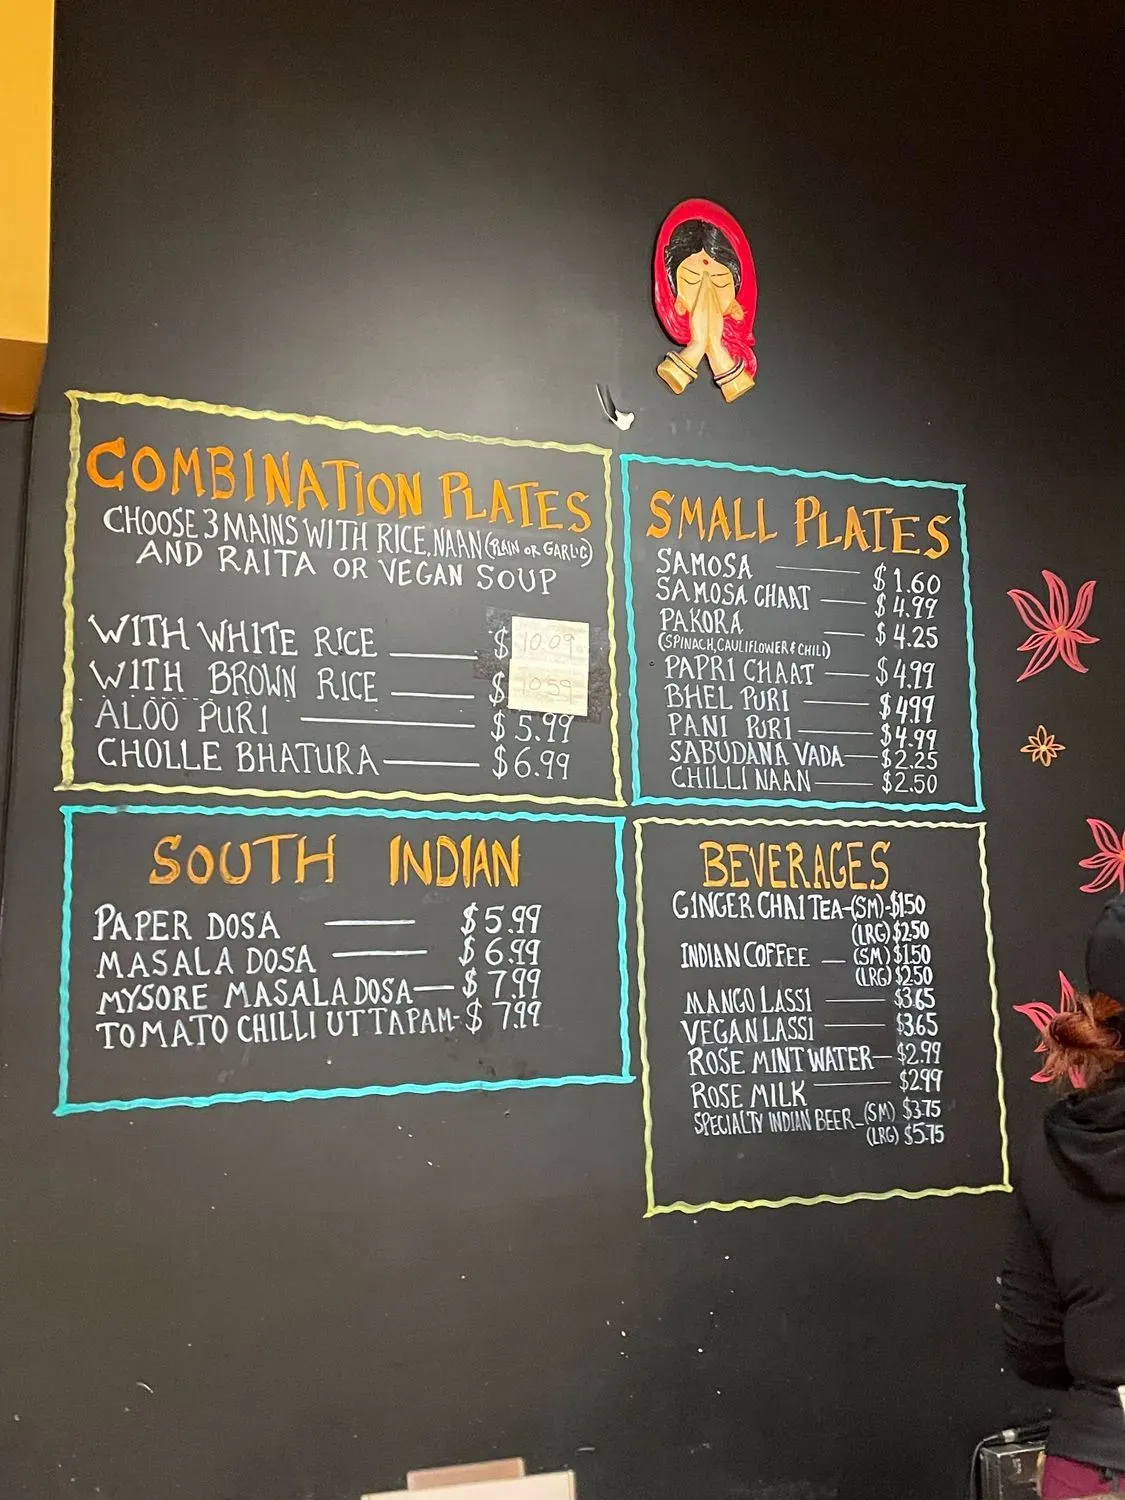 COMBINATION PLATES
CHOOSE 3 MAINS WITH RICE, NAAN (PLAIN OR GARLIC)
AND RAITA OR VEGAN SOUP
WITH WHITE RICE $ 10.09
WITH BROWN RICE $ 10.59
ALOO PURI $ 5.99
CHOLLE BHATURA $6.99
SMALL PLATES
SAMOSA $1.60
SAMOSA CHAAT $4.99
PAKORA $4.25
(SPINACH, CAULIFLOWER & CHILI)
PAPRI CHAAT $4.99
BHEL PURI $4.99
PANI PURI $4.99
SABUDANA VADA $2.25
CHILLI NAAN $2.50
SOUTH INDIAN
PAPER DOSA $5.99
MASALA DOSA $6.99
MYSORE MASALA DOSA $7.99
TOMATO CHILLI UTTAPAM- $7.99
BEVERAGES
GINGER CHAI TEA-(SM)-$1.50
(LRG) $2.50
INDIAN COFFEE — (SM) $1.50
(LRG) $2.50
MANGO LASSI $3.65
VEGAN LASSI $3.65
ROSE MINT WATER $2.99
ROSE MILK $2.99
SPECIALTY INDIAN BEER-(SM) $3.75
(LRG) $5.75